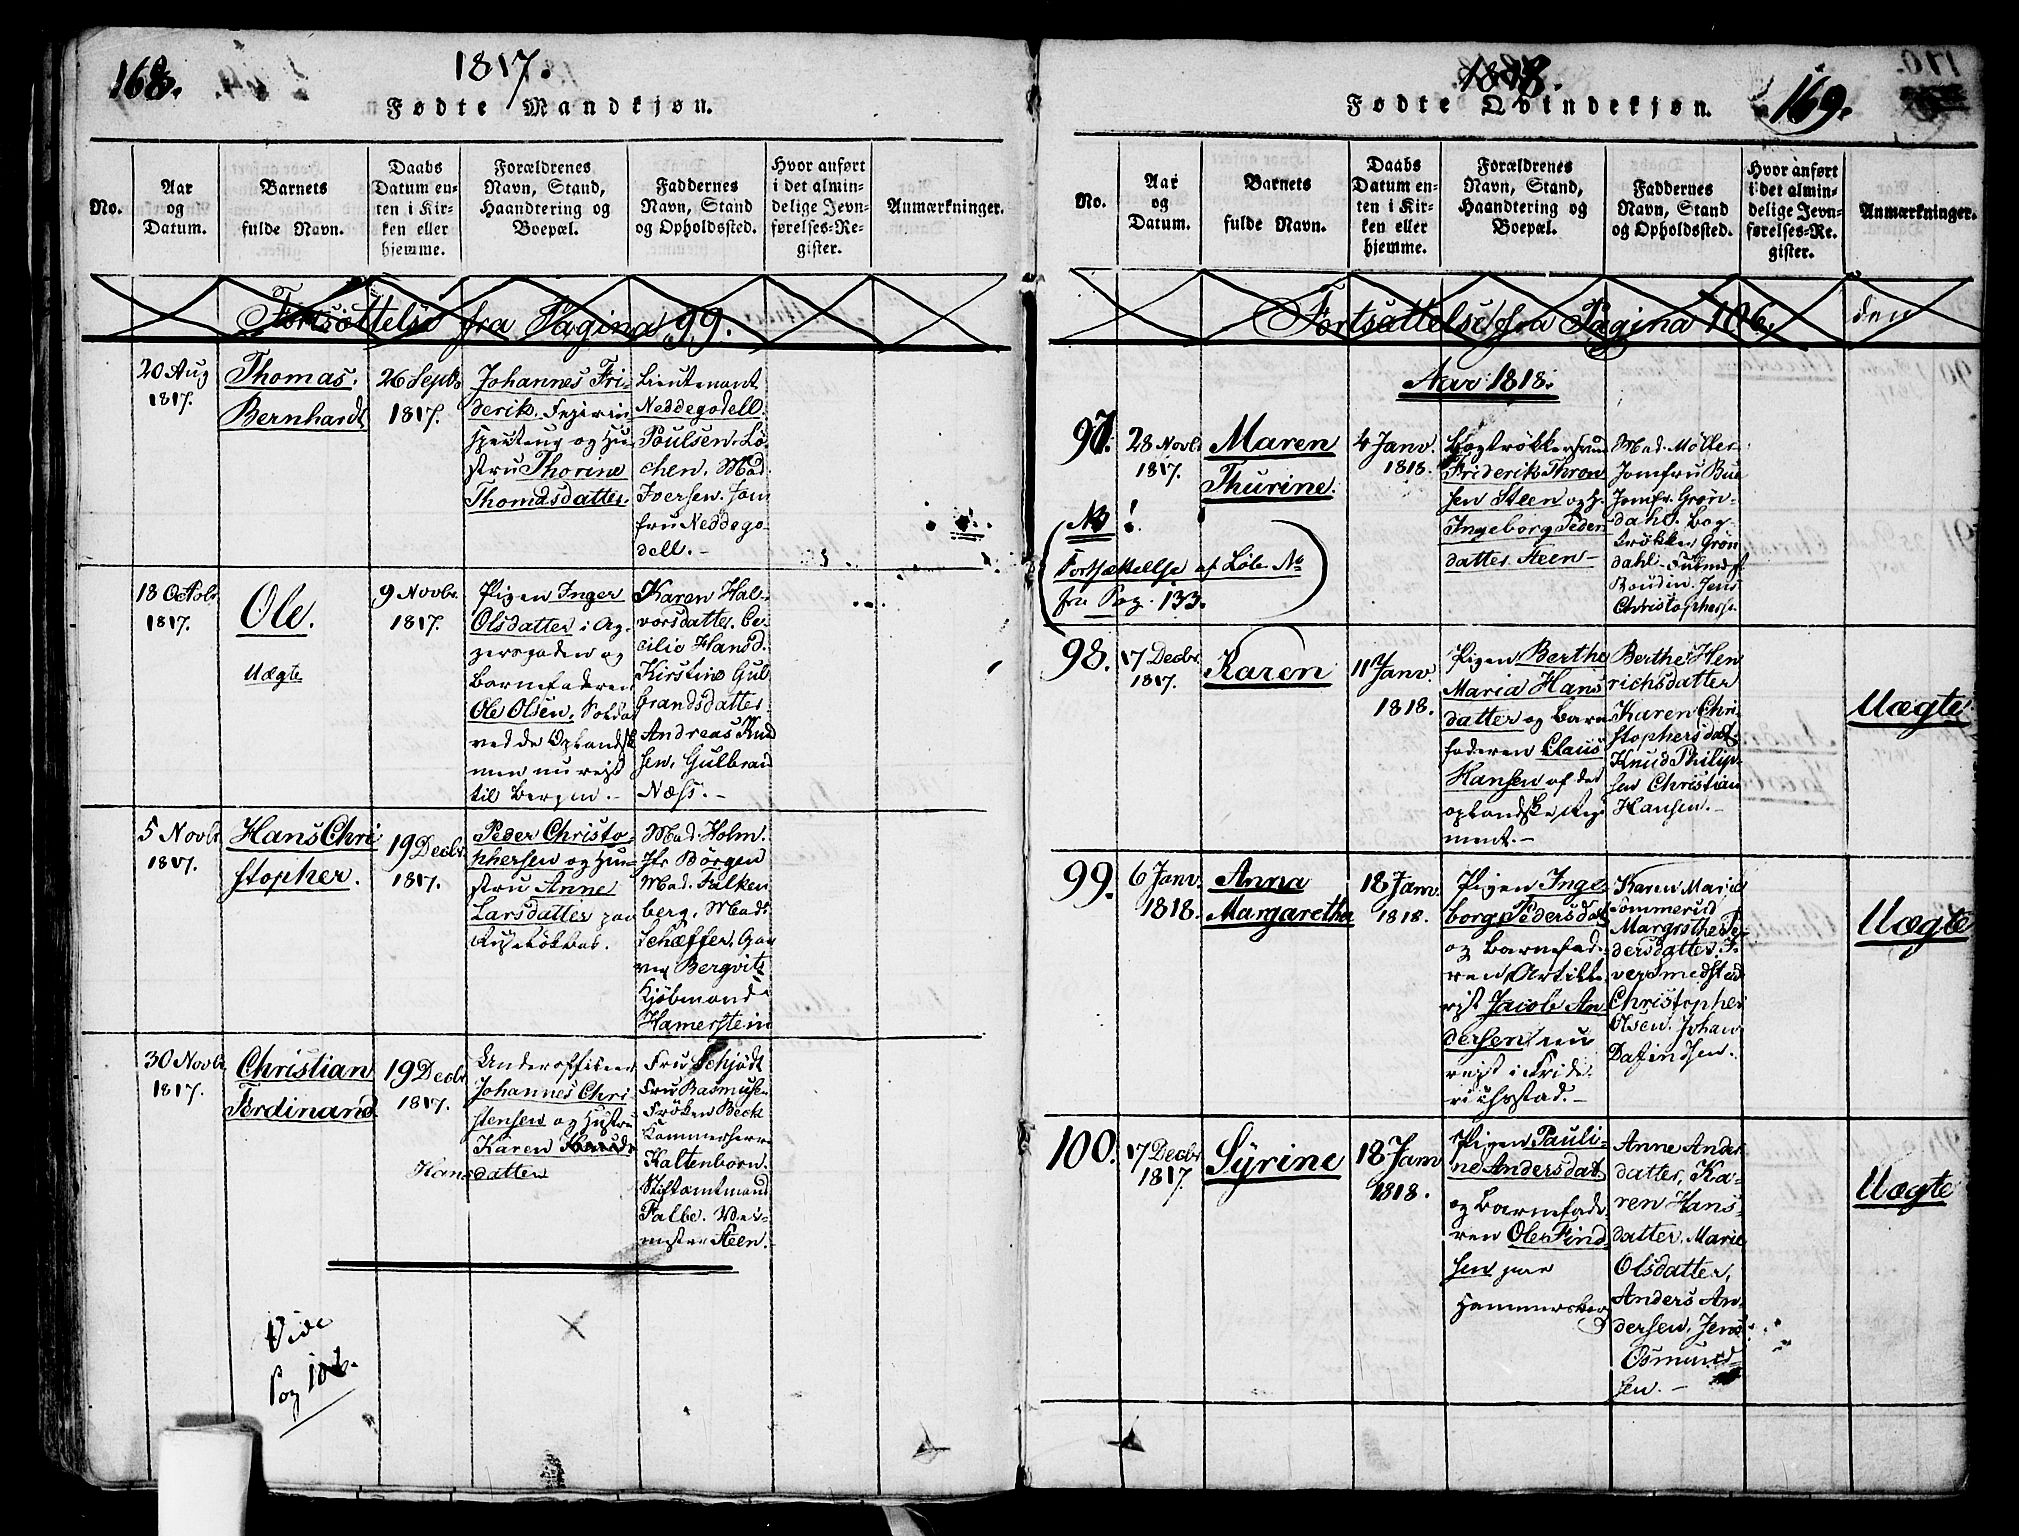 168.
1817.
Fødte Mandkjøn.
No.
Aar
og
Datum.
Barnets
fulde Navn.
Daabs
Datum en-
ten i Kir-
ken eller
hjemme.
Forældrenes
Navn, Stand,
Haandtering og
Boepæl.
Faddernes
Navn, Stand
og Opholdssted.
Hvor anført
i det almin-
delige Jevn-
førelses-Re-
gister.
Anmærkninger.
Fortsættelse fra Pagina 99.
20 Aug
1817.
Thomas.
Bernhardt
26 Septb.
1817.
Johannes Fri-
derik
og Hu-
stru Thorine
Thomasdatter.
Lieutenant
Neddegodell.
Poulsen. Lö-
chen. Mad.
Iversen. Jom
fru Neddego-
dell.-
18 Octobr
1817.
Ole.
Uægte
9 Novbr.
1817.
Pigen Inger
Olsdatter i Ag-
gersgaden og
Barnefaderen
Ole Olsen, Solda
ved de Oplandsk
men nu reist
til Bergen.-
Karen Hal-
vorsdatter. Ce-
cilie Hansd.
Kirstine Gul-
brandsdatter
Andreas Knud
sen, Gulbran
Næss.-
5 Novbr
1817.
Hans Chri
stopher.
19 Decbr.
1817.
Peder Christo-
phersen og Hu-
stru Anne
Larsdatter paa
Mad. Holm.
Hr Börgen
Mad. Falken
berg, Mads
Schæffer,
Bergvitz
Kjöbmand
Hamerstein
30 Novbr
1817.
Christian
Ferdinand
19 Decbr
1817.
Underofficeer
Johannes Chri
stensen og Hustru
Karen
Hansdatter
Fru Schjödt
Fru Rasmuse
Fröken Beck
Kammerherre
Kaltenborn.
Stiftamtmand
Falbe.
Steen.-
Vide
Pag 106.
1818.
Fødte Qvindekjøn.
169.
170.
No.
Aar
og
Datum.
Barnets
fulde Navn.
Daabs
Datum en-
ten i Kir-
ken eller
hjemme.
Forældrenes
Navn, Stand,
Haandtering og
Boepæl.
Faddernes
Navn, Stand
og Opholdssted.
Hvor anført
i det almin-
delige Jevn-
førelses-Re-
gister.
Anmærkninger.
Fortsættelse fra Pagina 106. den
Aar 1818.
97.
28 Novbr.
1817.
Maren
Thurine.
4 Janv.
1818.
NB!
Fortsættelse af Löbe No
fra Pag. 133.
Bogtrökkersvend
Friderik Thron
sen Steen og H.
Ingeborg Peder
datter Steen-
Mad. Möller
Jomfru Bue
Jomfr. Grön-
dahl. Bog-
trökker Grön
dahl.
Boudin. Jens
Christophers.
98.
17 Decbr
1817.
Karen
11 Janv.
1818.
Pigen Berthe
Maria Hans
datter og Barne
faderen Claus
Hansen af det
oplandske Regi
ment.-
Berthe Hen
richsdatter
Karen Chri-
stophersdatt
Knud Philip-
sen Christian
Hansen.-
Uægte
99.
6 Janv.
1818.
Anna
Margaretha
18 Janv.
1818.
Pigen Inge-
borg Pedersdat
og Barnefad-
ren Artille-
rist Jacob An
dersen nu
reist i Fride
richsstad.-
Karen Marie
Sommerud
Margrethe Pe-
dersdatter. I-
ver Smedstad
Christopher
Olsen. Johan
Uægte
100.
17 Decbr
1817.
Syrine
18 Janv
1818.
Pigen Pauli-
ne Andersdat.
og Barnefade-
ren Ole Find
sen paa
Hammersborg
Anne Anders
datter, Ka-
ren Hans-
datter. Marie
Olsdatter,
Anders An-
dersen, Jens
Osmund-
sen.-
Uægte